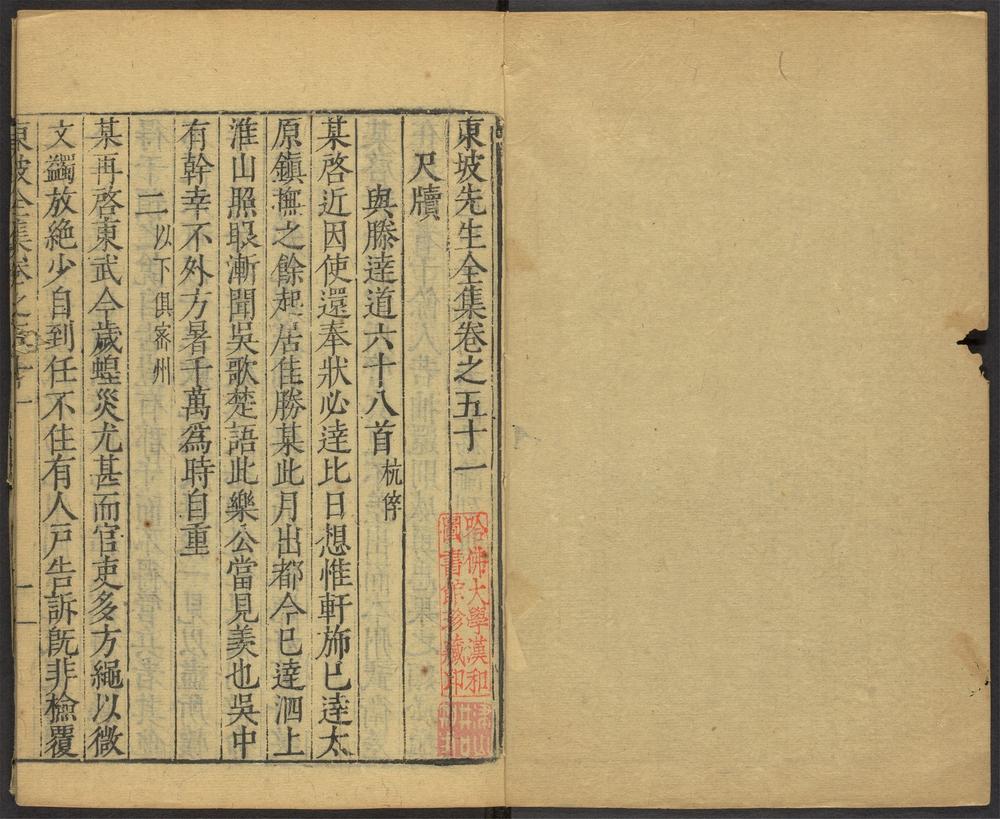 東坡先生全集卷之五十一
尺牘
與滕達道六十八首 杭倅
某啓近因使還奉狀必達比日想惟軒斾已達太
原鎮撫之餘起居佳勝某此月出都今已達泗上
淮山照眼漸聞吳歌楚語此樂公當見羡也吳中
有幹幸不外方暑千萬爲時自重
二 以下俱宻州
某再啓東武今歲蝗災尤甚而官吏多方繩以微
文蠲放絶少自到任不住有人戸告訴旣非檢覆
東坡全集卷之五十一
一
哈佛大學漢和
圖書館珍藏印